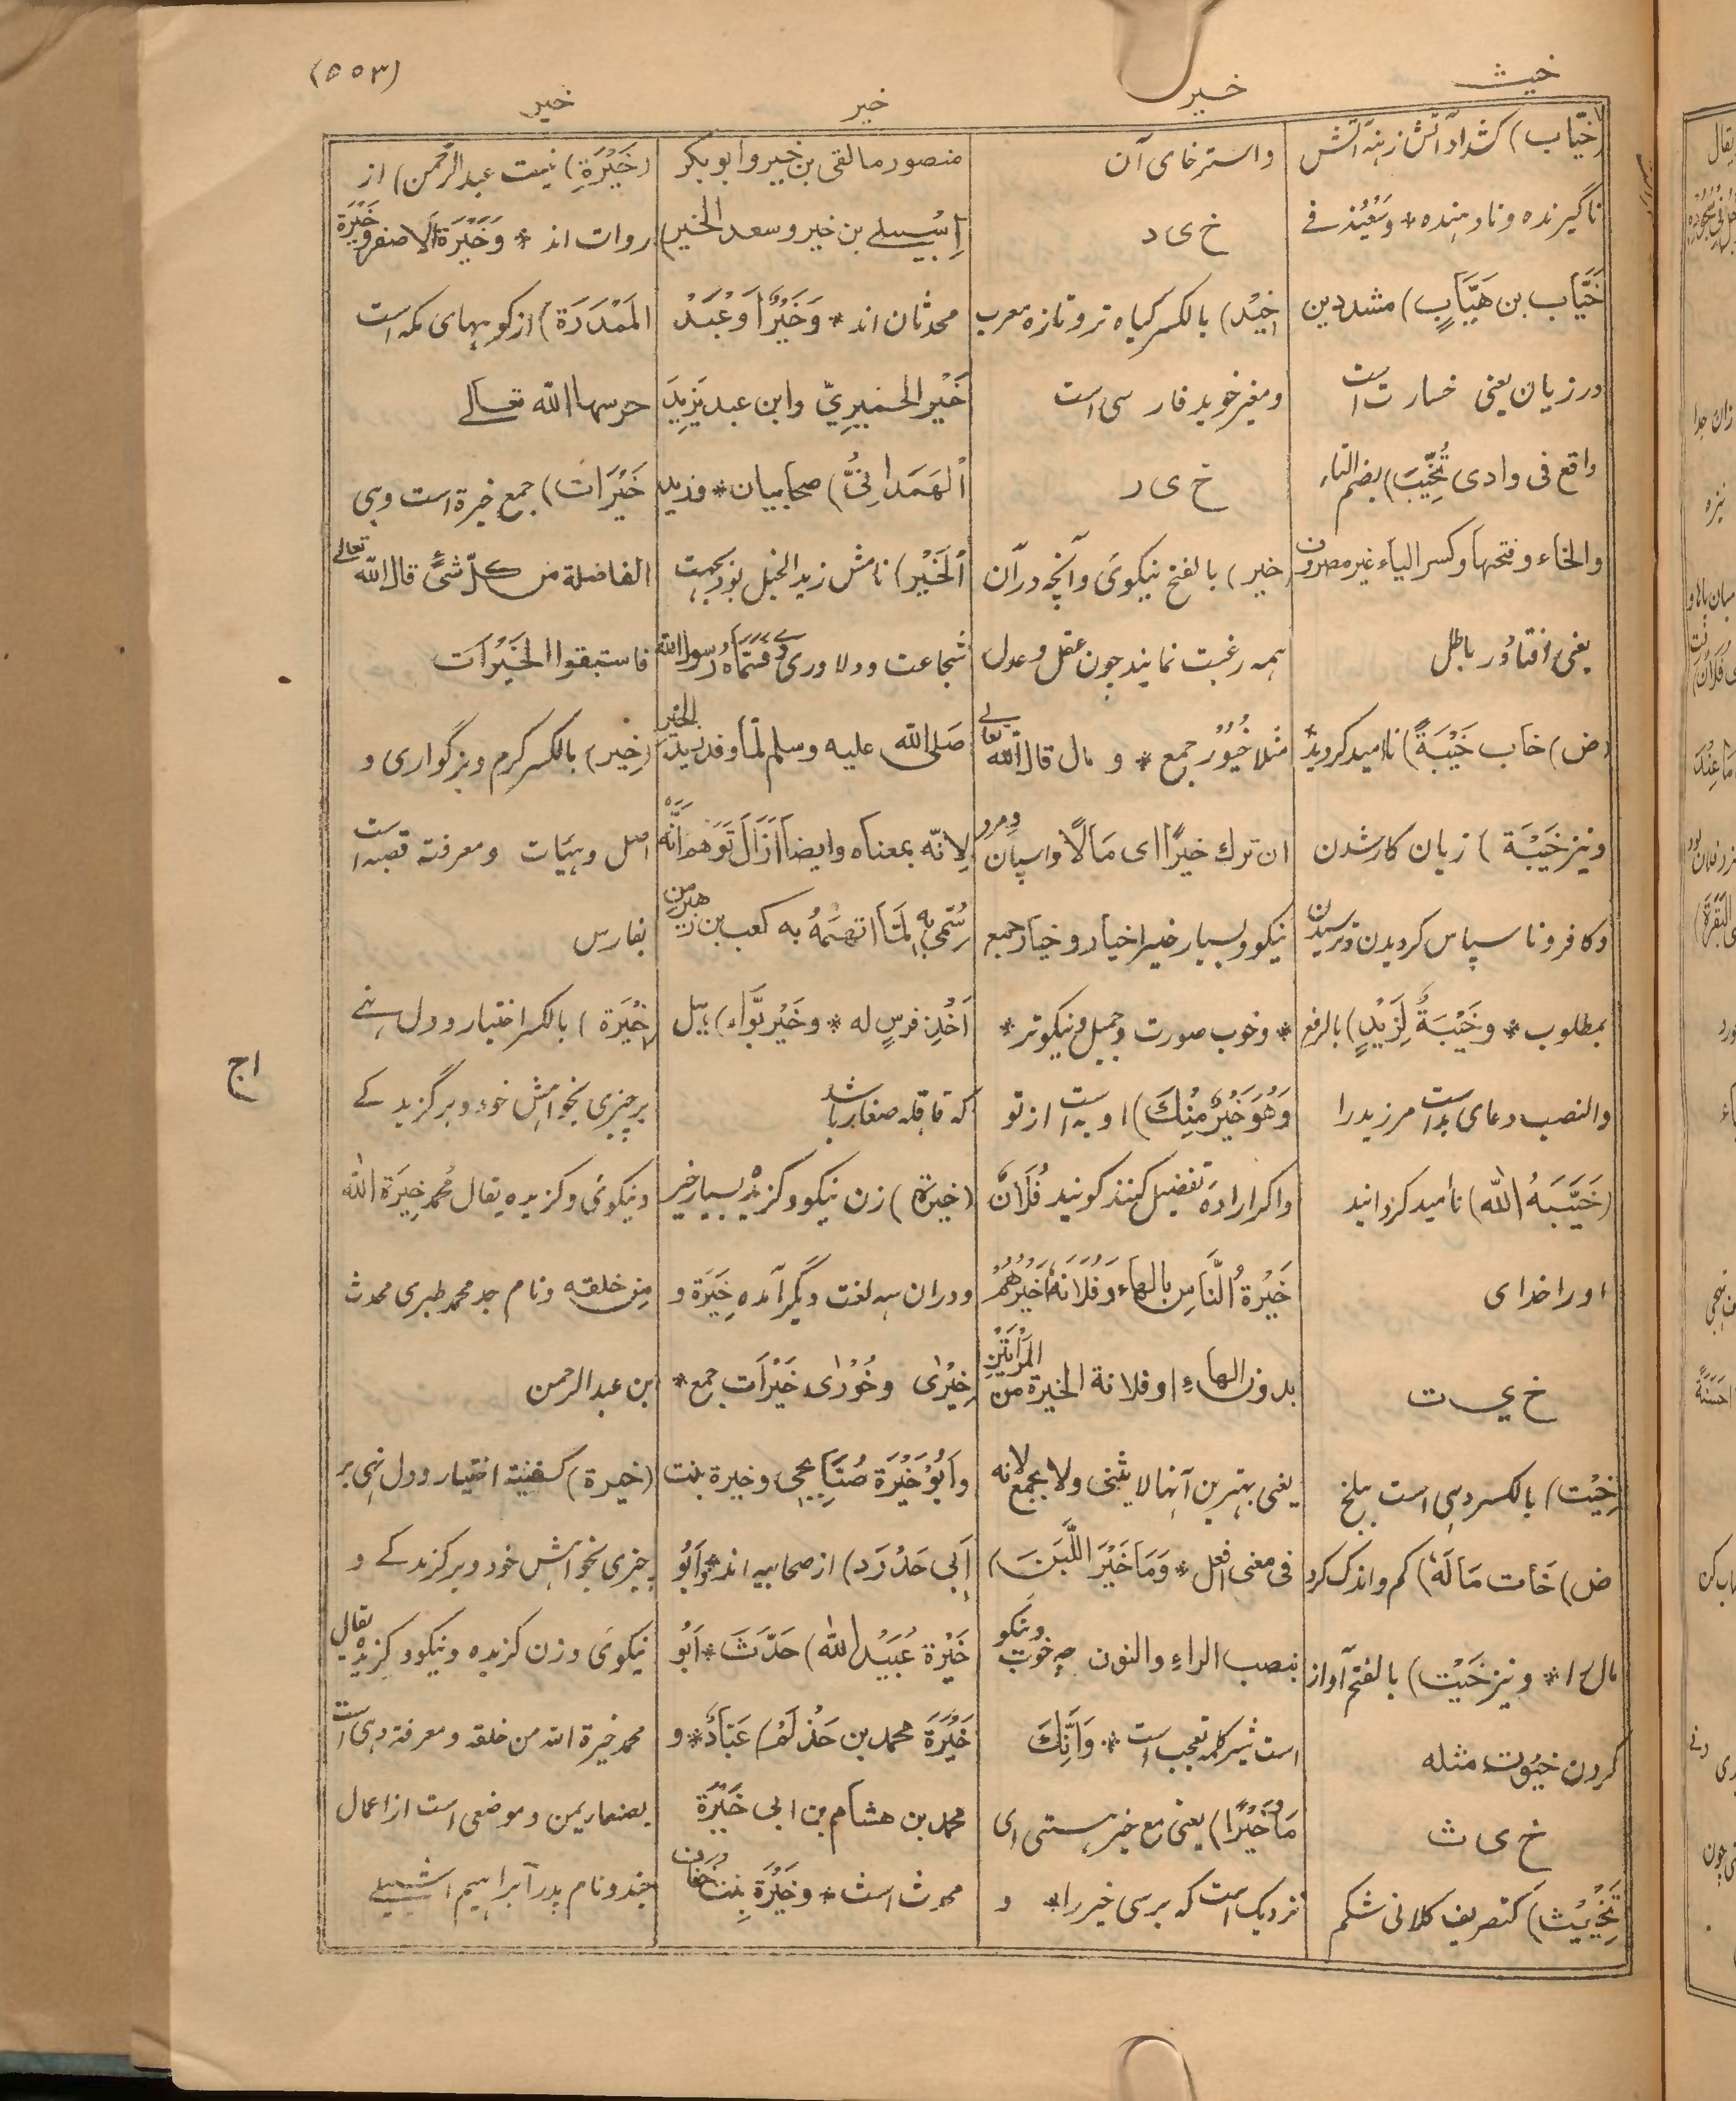 (٥٥٣)
خيث
خير
خير
خير
(خيّاب) كشداد آتش زنهٔ آتش
ناگيرنده و نادهنده * وسَعْيُهُ فے
خَيَّاب بن هَيَّابٍ) مشددين
در زيان يعنى خسارت است
واقع فى وادى تُخُيِّبَ) بضم التاء
والخاء وفتحها وكسر الياء غير مصروف
يعنى افتاد در باطل
(ض) خاب خَيْبَةً) نااميد گرديد
ونيز خَيْبَة) زيان كار شدن
وكافر و ناسپاس گرديدن و نرسيدن
بمطلوب * وخَيْبَةٌ لِزَيْدٍ) بالرفع
والنصب دعاى بد است مر زيد را
(خَيَّبَهُ الله) نااميد گرداند
او را خداى
خ ى ت
خِيْت) بالكسر دهى است ببلخ
ض) خَات مَالَهٗ) كم و اندك كرد
مال را * و نيز خَيْت) بالفتح آواز
كردن خيوت مثله
خ ى ث
تَخْيِيْث) كتصريف كلانى شكم
واسترخاى آن
خ ى د
خِيْد) بالكسر گياه تر و تازه معرب
ومغير خويد فارسى است
خ ى ر
(خير) بالفتح نيكوئى و آنچه در آن
همه رغبت نمايند چون عقل و عدل
مثلا خُيُوْر جمع * و مال قال الله تعالے
ان ترك خيرًا اى مَالًا و اسپان ومرد
نيكو و بسيار خير اخيار و خيار جمع
* و خوب صورت و جميل و نيكوتر *
وَهُوَ خَيْرٌ مِنْكَ) او به است از تو
و اگر ارادهٔ تفضيل كنند گويند فُلَانَةُ
خَيْرَةُ النَّاسِ بالهاء وَفُلَانَةُ خَيْرُهُمْ
بدون الهاءِ او فلانة الخيرة من المَرْأَتَيْنِ
يعنى بهترين آنها لا يثنى ولا يجمع لانه
فى معنى افعل * وَمَا خَيْرَ اللَّبَنَ)
بنصب الراءِ والنون چه خوب و نيكو
است شير كلمه تعجب است * وَاِنَّكَ
مَا وَخَيْرًا) يعنى مع خير هستى اى
نزديك است كه برسى خير را * و
منصور مالقى بن خير وابوبكر
اِشْبِيلے بن خير و سعد الخير)
محدثان اند * وَخَيْرٌ اَوْ عَبْدُ
خَيْر الحميرِيّ وابن عبد يَزِيدَ
اَلهَمَدانِيُّ) صحابيان * وزيد
اَلْخَيْر) نامش زيد الخيل بود بجهت
شجاعت و دلاورى وے وَسَمَّاهُ رسول الله
صَلى الله عليه وسلم لمّا وفد زيد الخير
لانّه بمعناه وايضًا اَزَالَ تَوَهُّمَ اَنَّهُ
سُمِّىَ بِه لَمّا اتهَمَهُ به كعب بن زهير من
اَخْذِ فرسٍ له * وخَيْر بَوَّاء) هيل
كه قاقله صغار باشد
(خيرة) زن نيكو و گزيدهٔ بسيار خير
و در ان سه لغت ديگر آمده خِيَرَة و
خِيْرٰى و خُوْرٰى خَيْرَات جمع *
واَبُوْ خَيْرَة صُنَابِحِى وخيرة بنت
اَبِي حَدْرَد) از صحابيه اند * وَاَبُو
خَيْرَة عُبَيْدُ اللهِ) حَدَّثَ * اَبُو
خَيْرَةَ محمد بن حَذْلَم) عَبَّادٌ * و
محمد بن هشام بن ابى خَيْرَة
محدث است * وخَيْرَة بِنت خفاف ورن
(خَيْرَة) بنت عبد الرحمن) از
روات اند * وَخَيْرَة اَلاصفر وخَيْرَة
المَمْدَرَة) از كوههاى مكه است
حرسها الله تعالے
خَيْرَات) جمع خيرة است وهى
الفاضلة من كلّ شئٍ قال الله تعالے
فاستبقوا الخَيْرَات
(خِير) بالكسر كرم و بزرگوارى و
اصل و هيئات و معرفته قصبه است
بفارس
(خِيْرَة) بالكسر اختيار و دل نهے
بر چيزى بخواهش خود و برگزيدگے
و نيكوئى و گزيده يقال مُحمد خِيَرَة الله
مِن خلقه و نام جد محمد طبرى محدث
ابن عبد الرحمن
(خيرة) كعنبة اختيار و دل نهى بر
چيزى بخواهش خود و برگزيدگے و
نيكوئى و زن گزيده و نيكو و گزيده يقال
محمد خيرة الله من خلقه و معرفته دهى است
بصنعاء يمن و موضعى است از اعمال
جند و نام پدر ابراهيم اشبيلے
اج